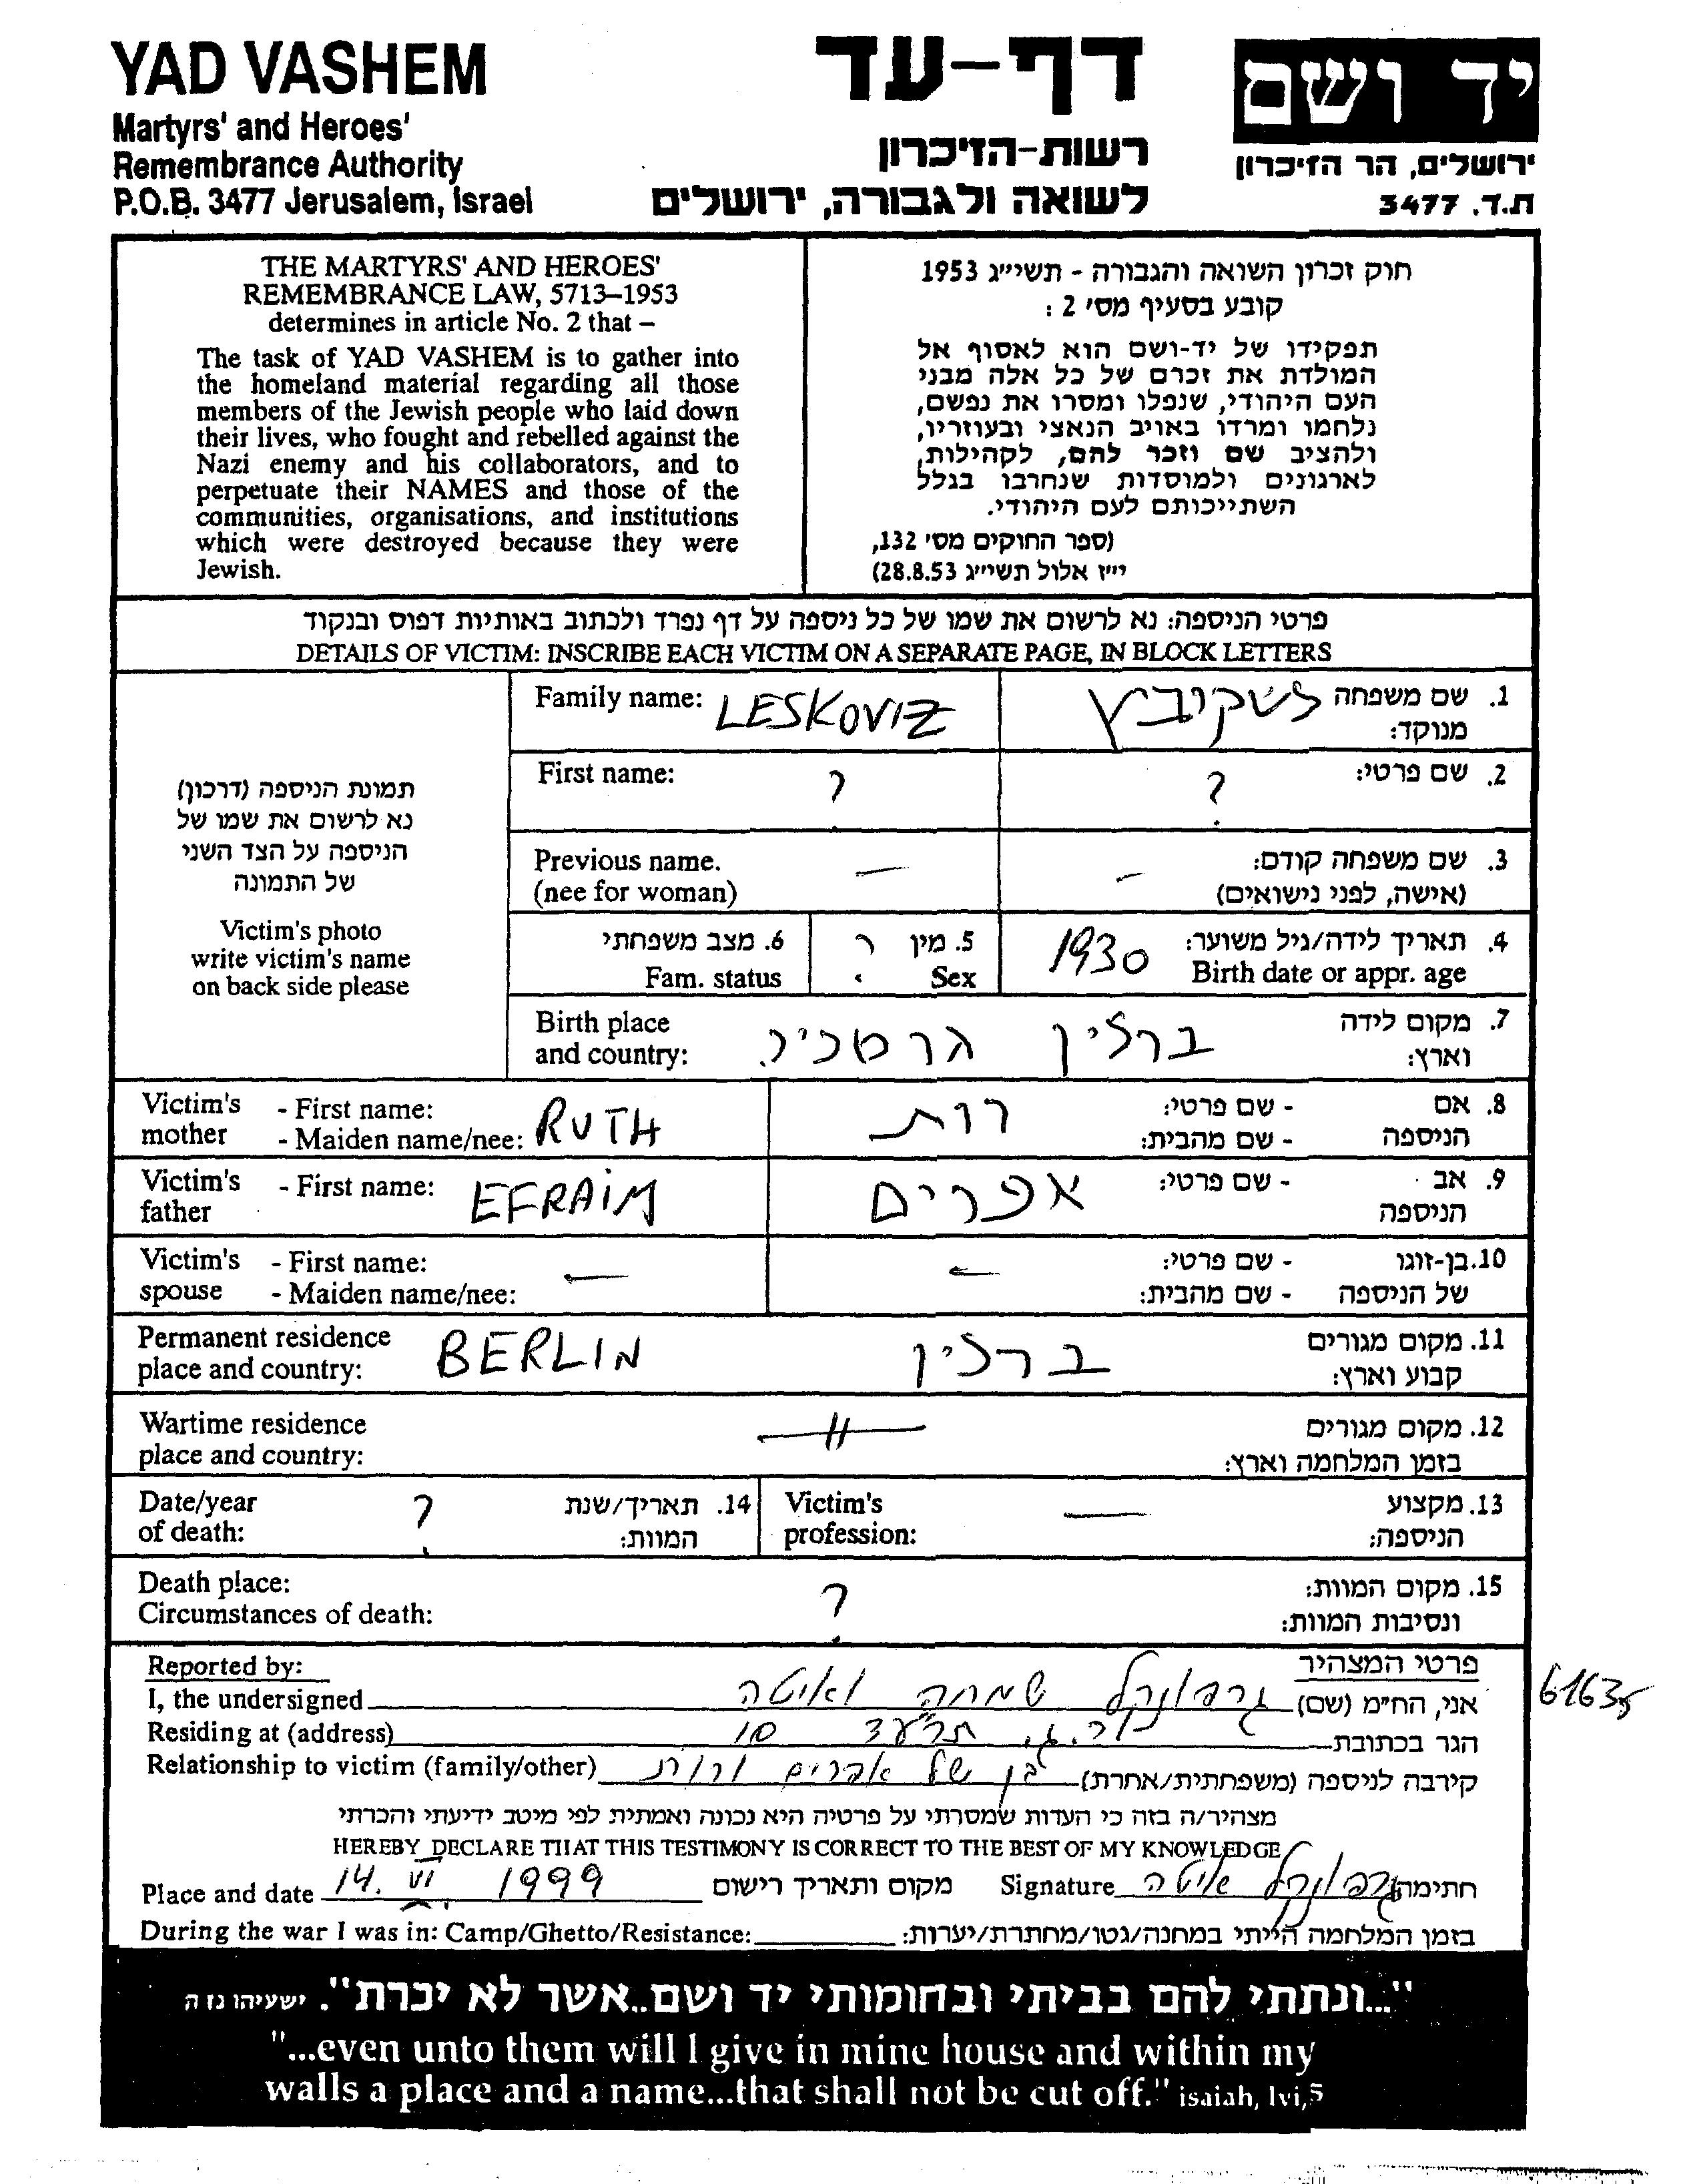 YAD VASHEM
Martyrs' and Heroes'
Remembrance Authority
P.O.B. 3477 Jerusalem, Israel
דף-עד
רשות-הזיכרון
לשואה ולגבורה, ירושלים
יד ושם
ירושלים, הר הזיכרון
ת.ד. 3477
THE MARTYRS' AND HEROES'
REMEMBRANCE LAW, 5713–1953
determines in article No. 2 that –
The task of YAD VASHEM is to gather into
the homeland material regarding all those
members of the Jewish people who laid down
their lives, who fought and rebelled against the
Nazi enemy and his collaborators, and to
perpetuate their NAMES and those of the
communities, organisations, and institutions
which were destroyed because they were
Jewish.
חוק זכרון השואה והגבורה - תשי״ג 1953
קובע בסעיף מס׳ 2 :
תפקידו של יד-ושם הוא לאסוף אל
המולדת את זכרם של כל אלה מבני
העם היהודי, שנפלו ומסרו את נפשם,
נלחמו ומרדו באויב הנאצי ובעוזריו,
ולהציב שם וזכר להם, לקהילות,
לארגונים ולמוסדות שנחרבו בגלל
השתייכותם לעם היהודי.
(ספר החוקים מס׳ 132,
י״ז אלול תשי״ג 28.8.53)
פרטי הניספה: נא לרשום את שמו של כל ניספה על דף נפרד ולכתוב באותיות דפוס ובנקוד
DETAILS OF VICTIM: INSCRIBE EACH VICTIM ON A SEPARATE PAGE, IN BLOCK LETTERS
תמונת הניספה (דרכון)
נא לרשום את שמו של
הניספה על הצד השני
של התמונה
Victim's photo
write victim's name
on back side please
Family name: LESKOVIZ
1. שם משפחה לשקוביץ
מנוקד:
First name: ?
2. שם פרטי: ?
Previous name. —
(nee for woman)
3. שם משפחה קודם: -
(אישה, לפני נישואים)
4. תאריך לידה/גיל משוער: 1930
Birth date or appr. age
5. מין ?
Sex
6. מצב משפחתי
Fam. status
Birth place
and country:
7. מקום לידה
וארץ:
ברלין גרמניה
Victim's - First name:
mother - Maiden name/nee: RUTH
8. אם - שם פרטי: רות
הניספה - שם מהבית:
Victim's - First name: EFRAIM
father
9. אב - שם פרטי: אפרים
הניספה
Victim's - First name: —
spouse - Maiden name/nee:
10. בן-זוגו - שם פרטי: —
של הניספה - שם מהבית:
Permanent residence BERLIN
place and country:
11. מקום מגורים ברלין
קבוע וארץ:
Wartime residence
place and country:
—//—
12. מקום מגורים
בזמן המלחמה וארץ:
Date/year ? 14. תאריך/שנת
of death: המוות:
Victim's — 13. מקצוע
profession: הניספה:
Death place: ? 15. מקום המוות:
Circumstances of death: ונסיבות המוות:
Reported by: פרטי המצהיר
I, the undersigned שמחה ואיטה אני, הח״מ (שם)
61635
Residing at (address) 10 הגר בכתובת
Relationship to victim (family/other) בן של אפרים ורות קירבה לניספה (משפחתית/אחרת)
מצהיר/ה בזה כי העדות שמסרתי על פרטיה היא נכונה ואמתית לפי מיטב ידיעתי והכרתי
HEREBY DECLARE THAT THIS TESTIMONY IS CORRECT TO THE BEST OF MY KNOWLEDGE
Place and date 14. VI. 1999 מקום ותאריך רישום Signature איטה חתימה
During the war I was in: Camp/Ghetto/Resistance: בזמן המלחמה הייתי במחנה/גטו/מחתרת/יערות:
"...ונתתי להם בביתי ובחומותי יד ושם..אשר לא יכרת". ישעיהו נו ה
"...even unto them will I give in mine house and within my
walls a place and a name...that shall not be cut off." isaiah, lvi,5